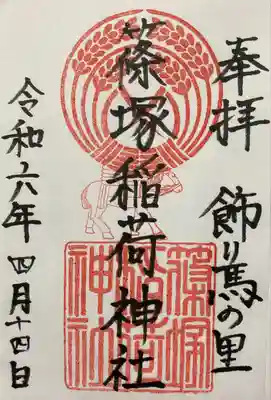 奉拝
飾り馬の里
篠塚稲荷神社
令和六年 四月十四日
篠塚稲荷神社